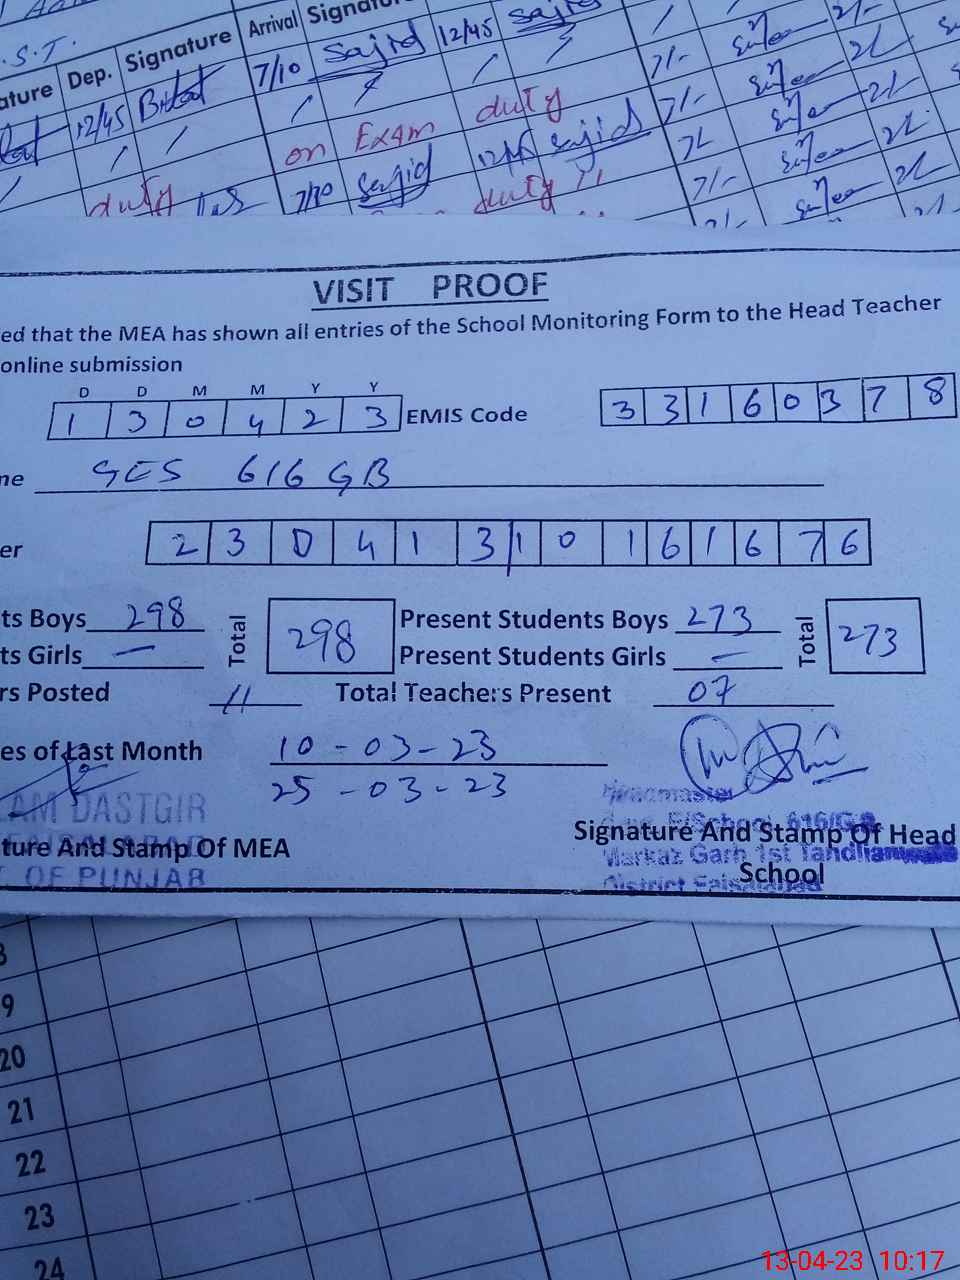 S.T.
ature Dep. Signature Arrival Signatu
12/45 7/10 Sajid 12/45 Sajid 7/- 2/-
on Exam duty 7/- 2/-
duty 7/10 Sajid Sajid 7/- 2/-
duty
VISIT PROOF
ed that the MEA has shown all entries of the School Monitoring Form to the Head Teacher
online submission
D D M M Y Y
1 3 0 4 2 3 EMIS Code 3 3 1 6 0 3 7 8
me GES 616 GB
er 2 3 0 4 1 3 1 0 1 6 1 6 7 6
ts Boys 298 Total 298 Present Students Boys 273 Total 273
ts Girls — Present Students Girls —
rs Posted 11 Total Teachers Present 07
es of Last Month 10-03-23
25-03-23
AM DASTGIR
Headmaster
E/School 616/G.B
ture And Stamp Of MEA Signature And Stamp Of Head
FAISALABAD
Markaz Garh 1st Tandlianwala
School
OF PUNJAB District Faisalabad
8
9
20
21
22
23
24
13-04-23 10:17